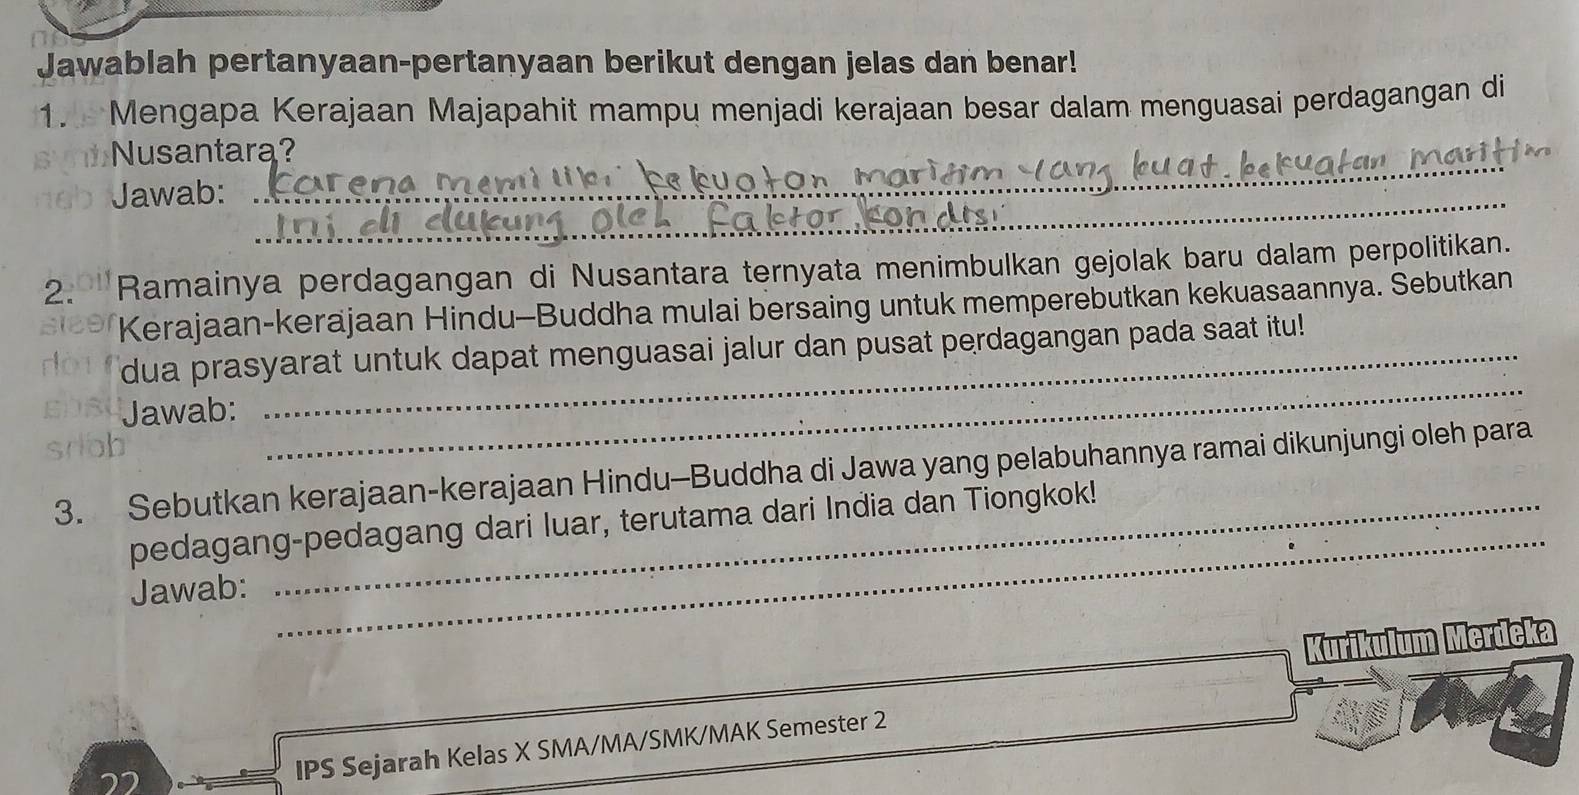 Jawablah pertanyaan-pertanyaan berikut dengan jelas dan benar!
1. Mengapa Kerajaan Majapahit mampu menjadi kerajaan besar dalam menguasai perdagangan di
Nusantara?
Jawab: karena memiliki kekuatan maritim yang kuat. kekuatan maritim
ini di dukung oleh faktor kondisi
2. Ramainya perdagangan di Nusantara ternyata menimbulkan gejolak baru dalam perpolitikan.
Kerajaan-kerajaan Hindu–Buddha mulai bersaing untuk memperebutkan kekuasaannya. Sebutkan
dua prasyarat untuk dapat menguasai jalur dan pusat perdagangan pada saat itu!
Jawab:
3. Sebutkan kerajaan-kerajaan Hindu–Buddha di Jawa yang pelabuhannya ramai dikunjungi oleh para
pedagang-pedagang dari luar, terutama dari India dan Tiongkok!
Jawab:
Kurikulum Merdeka
IPS Sejarah Kelas X SMA/MA/SMK/MAK Semester 2
22